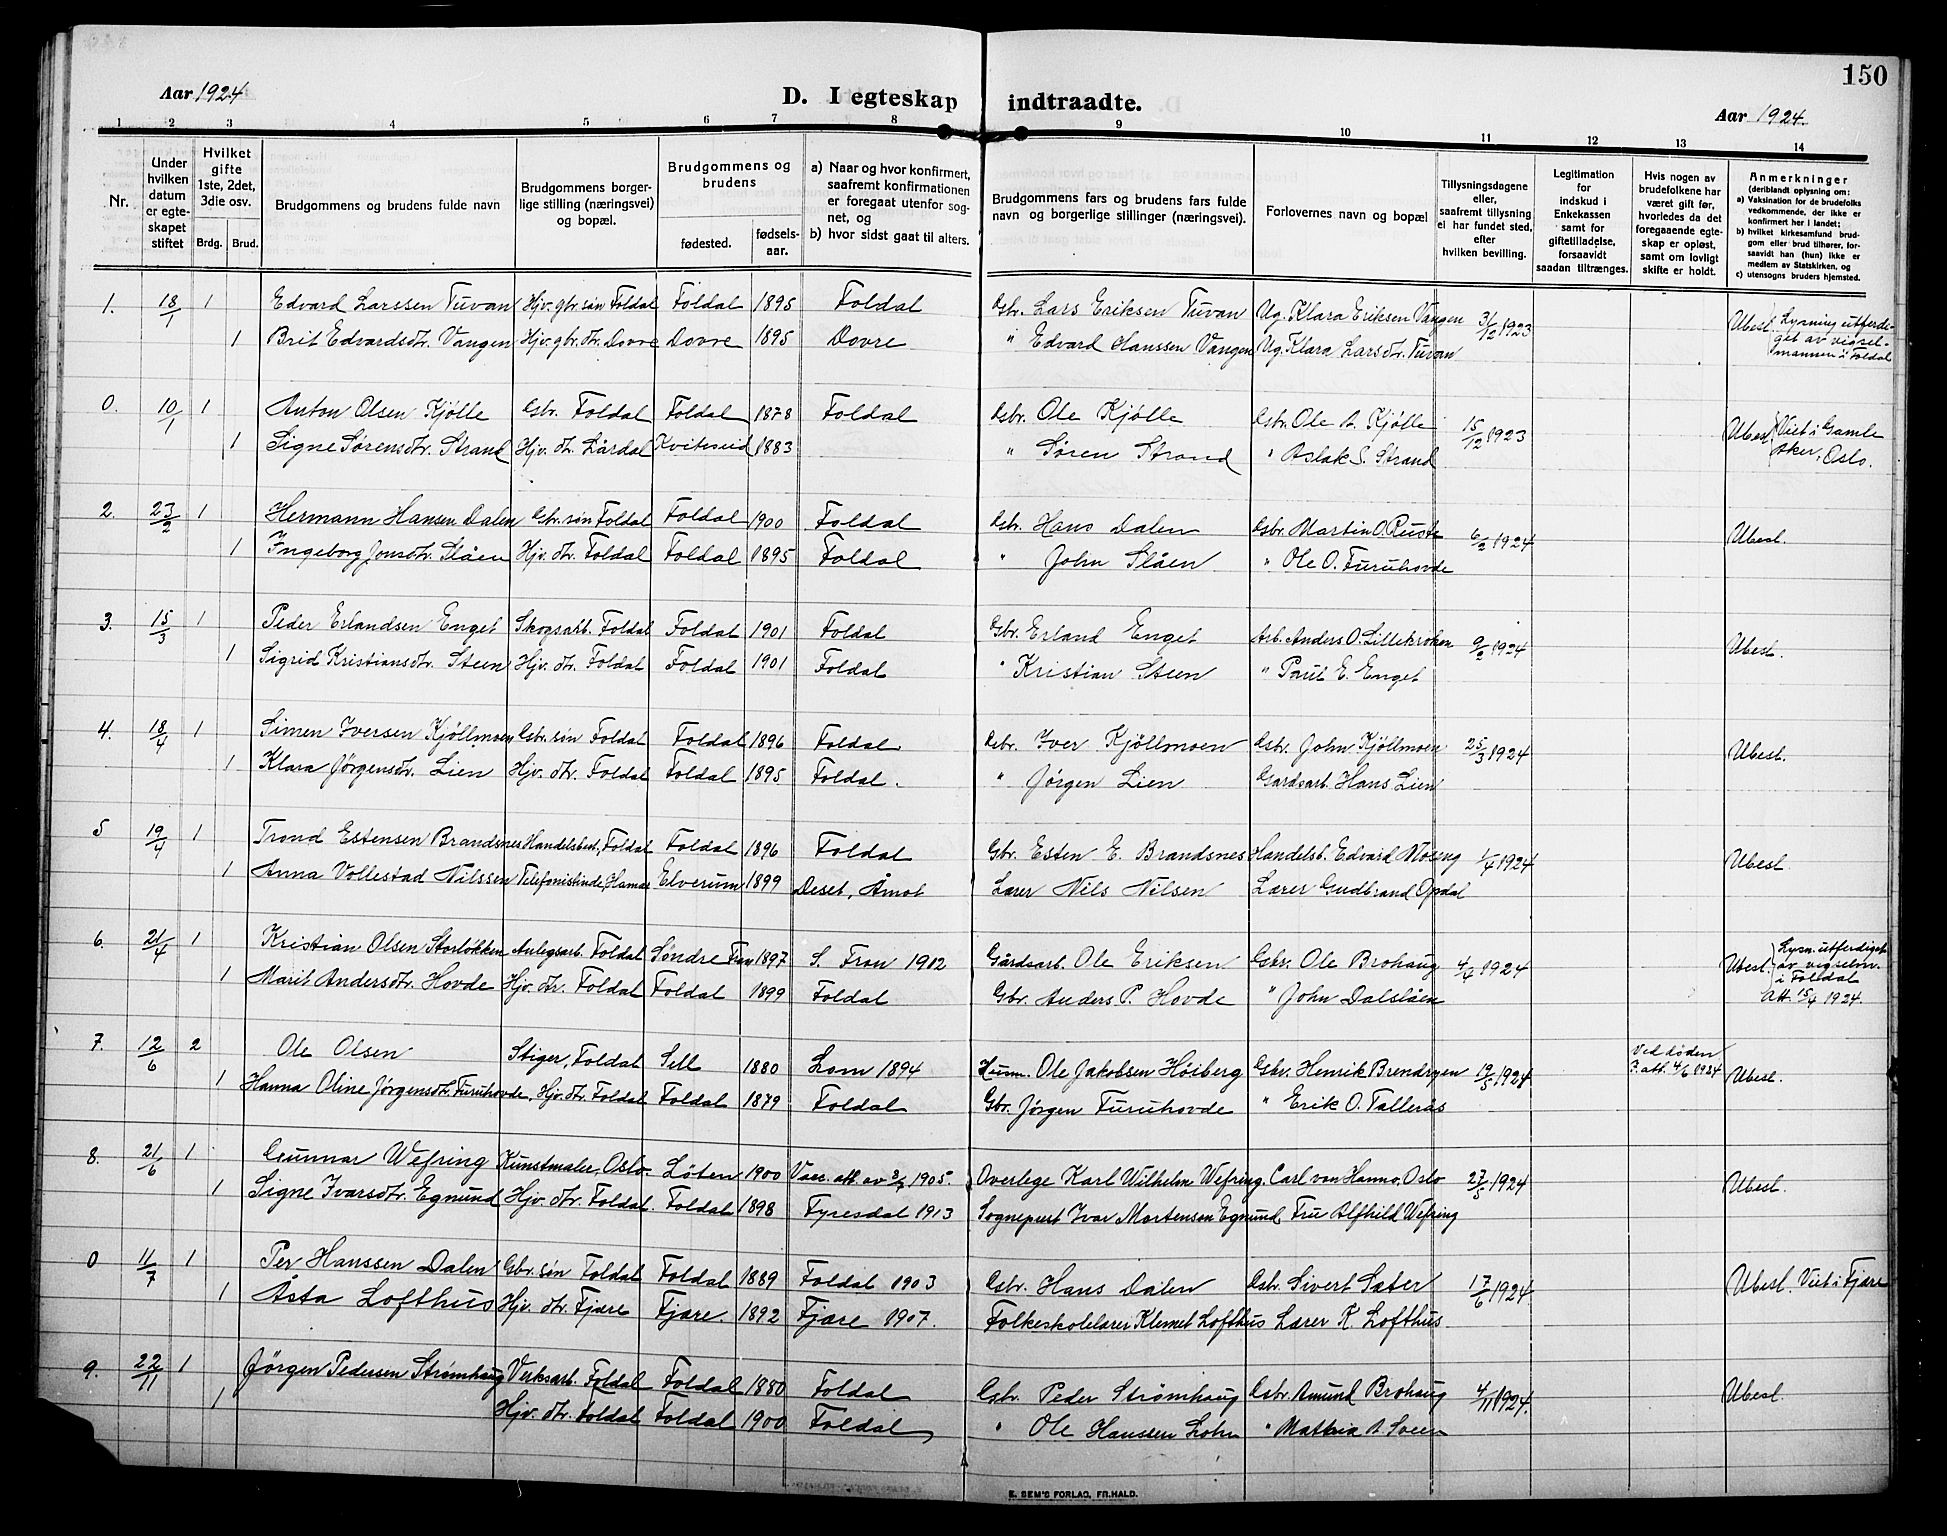 150
Aar 1924
D. I egteskap indtraadte.
Aar 1924.
1 2 3 4 5 6 7 8 9 10 11 12 13 14
Nr.
Under hvilken datum er egteskapet stiftet
Hvilket gifte 1ste, 2det, 3die osv.
Brdg. Brud.
Brudgommens og brudens fulde navn
Brudgommens borgerlige stilling (næringsvei) og bopæl.
Brudgommens og brudens
fødested. fødselsaar.
a) Naar og hvor konfirmert, saafremt konfirmationen er foregaat utenfor sognet, og
b) hvor sidst gaat til alters.
Brudgommens fars og brudens fars fulde navn og borgerlige stillinger (næringsvei).
Forlovernes navn og bopæl
Tillysningsdagene eller, saafremt tillysning ei har fundet sted, efter hvilken bevilling.
Legitimation for indskud i Enkekassen samt for giftetilladelse, forsaavidt saadan tiltrænges.
Hvis nogen av brudefolkene har været gift før, hvorledes da det foregaaende egteskap er opløst, samt om lovligt skifte er holdt.
Anmerkninger (deriblandt oplysning om:
a) Vaksination for de brudefolks vedkommende, der ikke er konfirmert her i landet;
b) hvilket kirkesamfund brudgom eller brud tilhører, forsaavidt han (hun) ikke er medlem av Statskirken, og
c) utensogns bruders hjemsted.
1. 18/1 1 Edvard Larssen Tuvan Hjv. gbr. søn Foldal Foldal 1895 Foldal Gbr. Lars Eriksen Tuvan Ug. Klara Eriksen Vangen 31/12 1923 Ubesl. Lysning utferdiget av vigselmannen i Foldal
1 Brit Edvardsdtr. Vangen Hjv. gbr. dtr. Dovre Dovre 1895 Dovre " Edvard Hanssen Vangen Ug. Klara Larsdtr. Tuvan
0. 10/1 1 Anton Olsen Kjølle Gbr. Foldal Foldal 1878 Foldal Gbr. Ole Kjølle Gbr. Ole A. Kjølle 15/12 1923 Ubesl. Viet i Gamle Aker, Oslo.
1 Signe Sørensdtr. Strand Hjv. dtr. Lårdal Kviteseid 1883 " Søren Strand " Aslak S. Strand
2. 23/2 1 Hermann Hansen Dalen Gbr. søn Foldal Foldal 1900 Foldal Gbr. Hans Dalen Gbr. Martin O. Ruste 6/2 1924 Ubesl.
1 Ingeborg Jonsdtr. Slåen Hjv. dtr. Foldal Foldal 1895 Foldal " John Slåen " Ole O. Furuhovde
3. 15/3 1 Peder Erlandsen Enget Skogsarb. Foldal Foldal 1901 Foldal Gbr. Erland Enget Arb. Anders O. Lillekroken 9/2 1924 Ubesl.
1 Sigrid Kristiansdtr. Steen Hjv. dtr. Foldal Foldal 1901 Foldal " Kristian Steen " Paul E. Enget
4. 18/4 1 Simen Iversen Kjøllmoen Gbr. søn Foldal Foldal 1896 Foldal Gbr. Iver Kjøllmoen Gbr. John Kjøllmoen 25/3 1924 Ubesl.
1 Klara Jørgensdtr. Lien Hjv. dtr. Foldal Foldal 1895 Foldal. " Jørgen Lien Gardsarb. Hans Lien
5 19/4 1 Trond Estensen Brandsnes Handelsbest., Foldal Foldal 1896 Foldal Gbr. Esten E. Brandsnes Handelsb. Edvard Moseng 1/4 1924 Ubesl.
1 Anna Vollestad Nilssen Telefonistinde, Hamar Elverum 1899 Deset, Åmot Lærer Nils Nilsen Lærer Gudbrand Opdal
6. 21/4 1 Kristian Olsen Storløkken Anlegsarb. Foldal Søndre Fron 1897 S. Fron 1912 Gårdsarb. Ole Eriksen Gbr. Ole Brohaug 4/4 1924 Ubesl. Lysn. utferdiget av vigselsm. i Folldal Att. 15/4 1924.
1 Marit Andersdtr. Hovde Hjv. dtr. Foldal Foldal 1899 Foldal Gbr. Anders P. Hovde " John Dalslåen
7. 12/6 2 Ole Olsen Stiger, Foldal Sell 1880 Lom 1894 Husm. Ole Jakobsen Høiberg Gbr. Henrik Brendryen 19/5 1924 Ved døden att. 4/6 1924 Ubesl.
1 Hanna Oline Jørgensdtr. Furuhovde, Hjv. dtr. Foldal Foldal 1879 Foldal Gbr. Jørgen Furuhovde " Erik O. Tallerås
8. 21/6 1 Gunnar Wefring Kunstmaler, Oslo. Løten 1900 Vacc. att. av 3/7 1905. Overlege Karl Wilhelm Wefring. Carl von Hanno, Oslo 27/5 1924 Ubesl.
1 Signe Ivarsdtr. Egnund Hjv. dtr. Foldal. Foldal 1898 Fyresdal 1913 Sogneprest Ivar Mortensen Egnund Fru Alfhild Wefring
0 11/7 1 Per Hanssen Dalen Gbr. søn Foldal Foldal 1889 Foldal 1903 Gbr. Hans Dalen Gbr. Sivert Sæter 17/6 1924 Ubesl. Viet i Fjære
1 Åsta Lofthus Hjv. dtr. Fjære Fjære. 1892 Fjære 1907. Folkeskolelærer Klemet Lofthus Lærer K. Lofthus
9. 22/11 1 Jørgen Pedersen Strømhaug Verksarb. Foldal Foldal 1880 Foldal Gbr. Peder Strømhaug Gbr. Amund Brohaug 4/11 1924. Ubesl.
1 Hjv. dtr. Foldal Foldal 1900 Foldal " Ole Hanssen " Mathia A. Sveen
E. SEM'S FORLAG, FR.HALD.